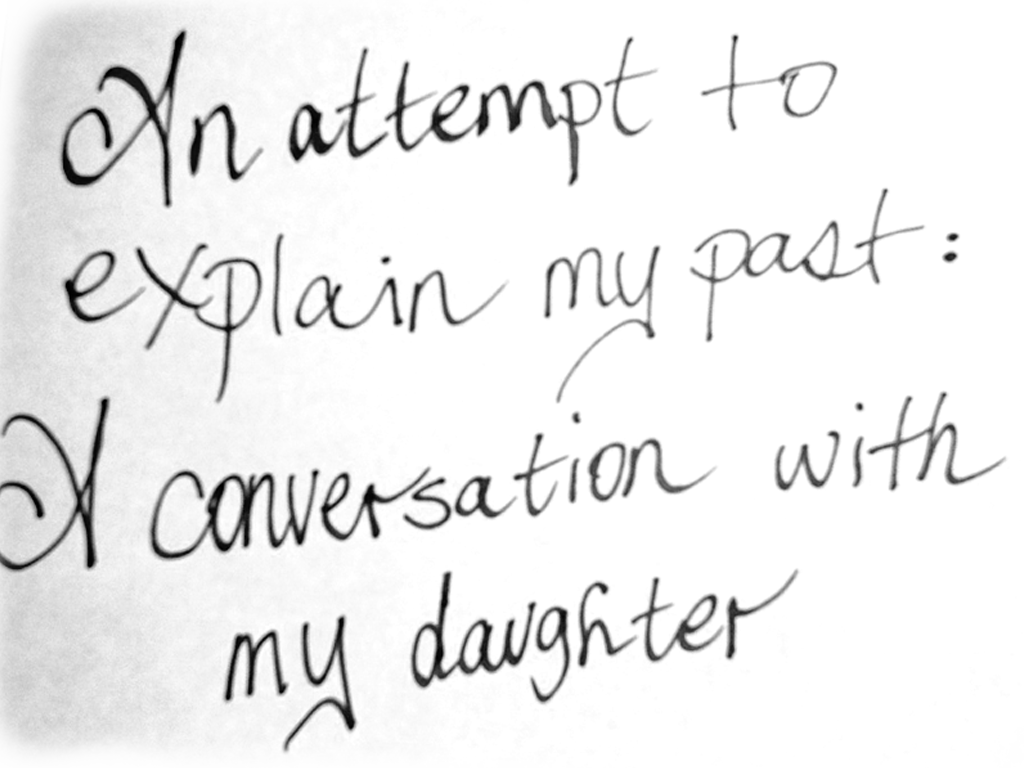 An attempt to
explain my past:
A conversation with
my daughter